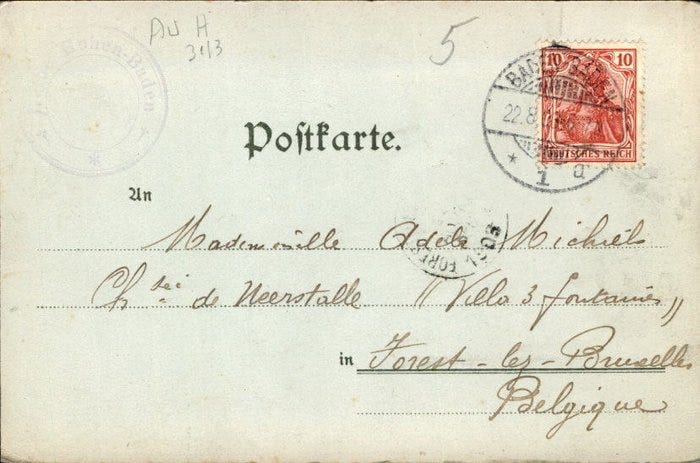 AU H
3113
5
Hohen-Baden
10 10
DEUTSCHES REICH
BADEN-BADEN
22.8.
* 1 a
Postkarte.
An
Mademoiselle Adèle Michiels
Chsée de Neerstalle "Villa 3 fontaines"
FOREST
1903
in Forest-lez-Bruxelles
Belgique